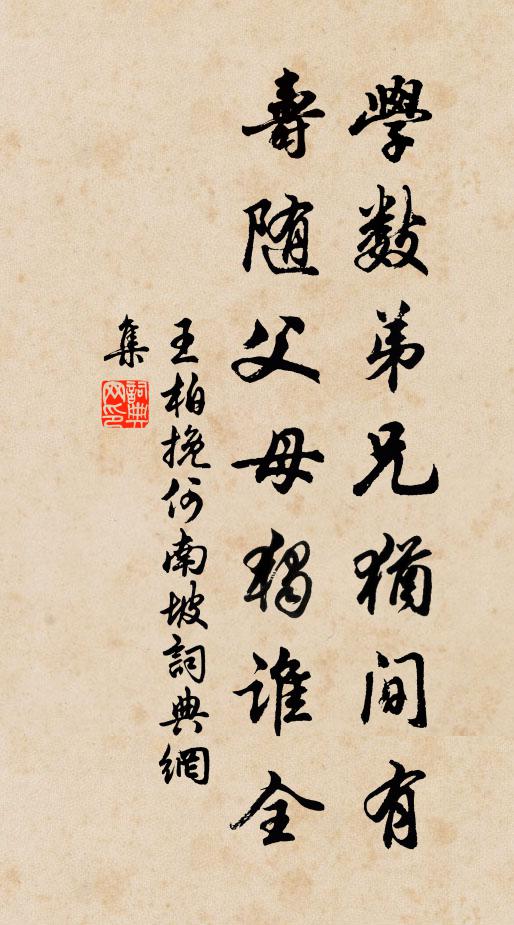 學数弟兄猶間有
壽随父母獨誰全
王柏挽何南坡詞典網
集
詞典网印